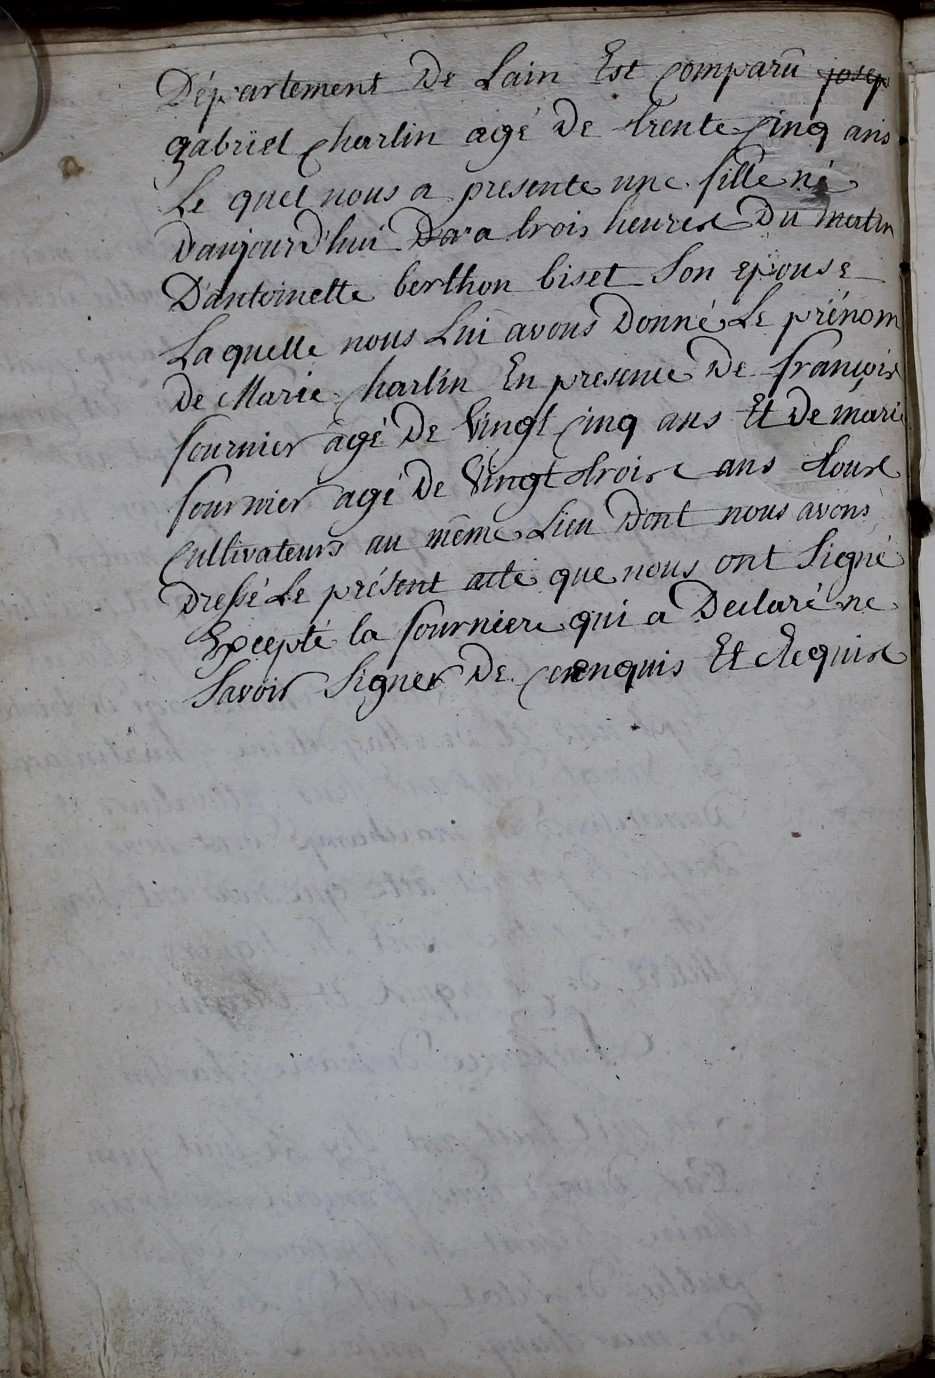 Département De Lain Est Comparû josep
gabriel Charlin agé De trente Cinq ans
Le quel nous a presente une fille né
D'aujourd'hui a trois heures Du matin
D'antoinette berthon biset Son epouse
Laquelle nous Lui avons Donné Le prénom
De Marie Charlin En presence De françois
fournier âgé De Vingt Cinq ans Et De mari
fournier agé De Vingt troise ans touse
Cultivateurs au même Lieu Dont nous avons
Dressé Le présent acte que nous ont Signé
Excepté la fourniere qui a Declaré ne
Savoir Signer De Et Requise